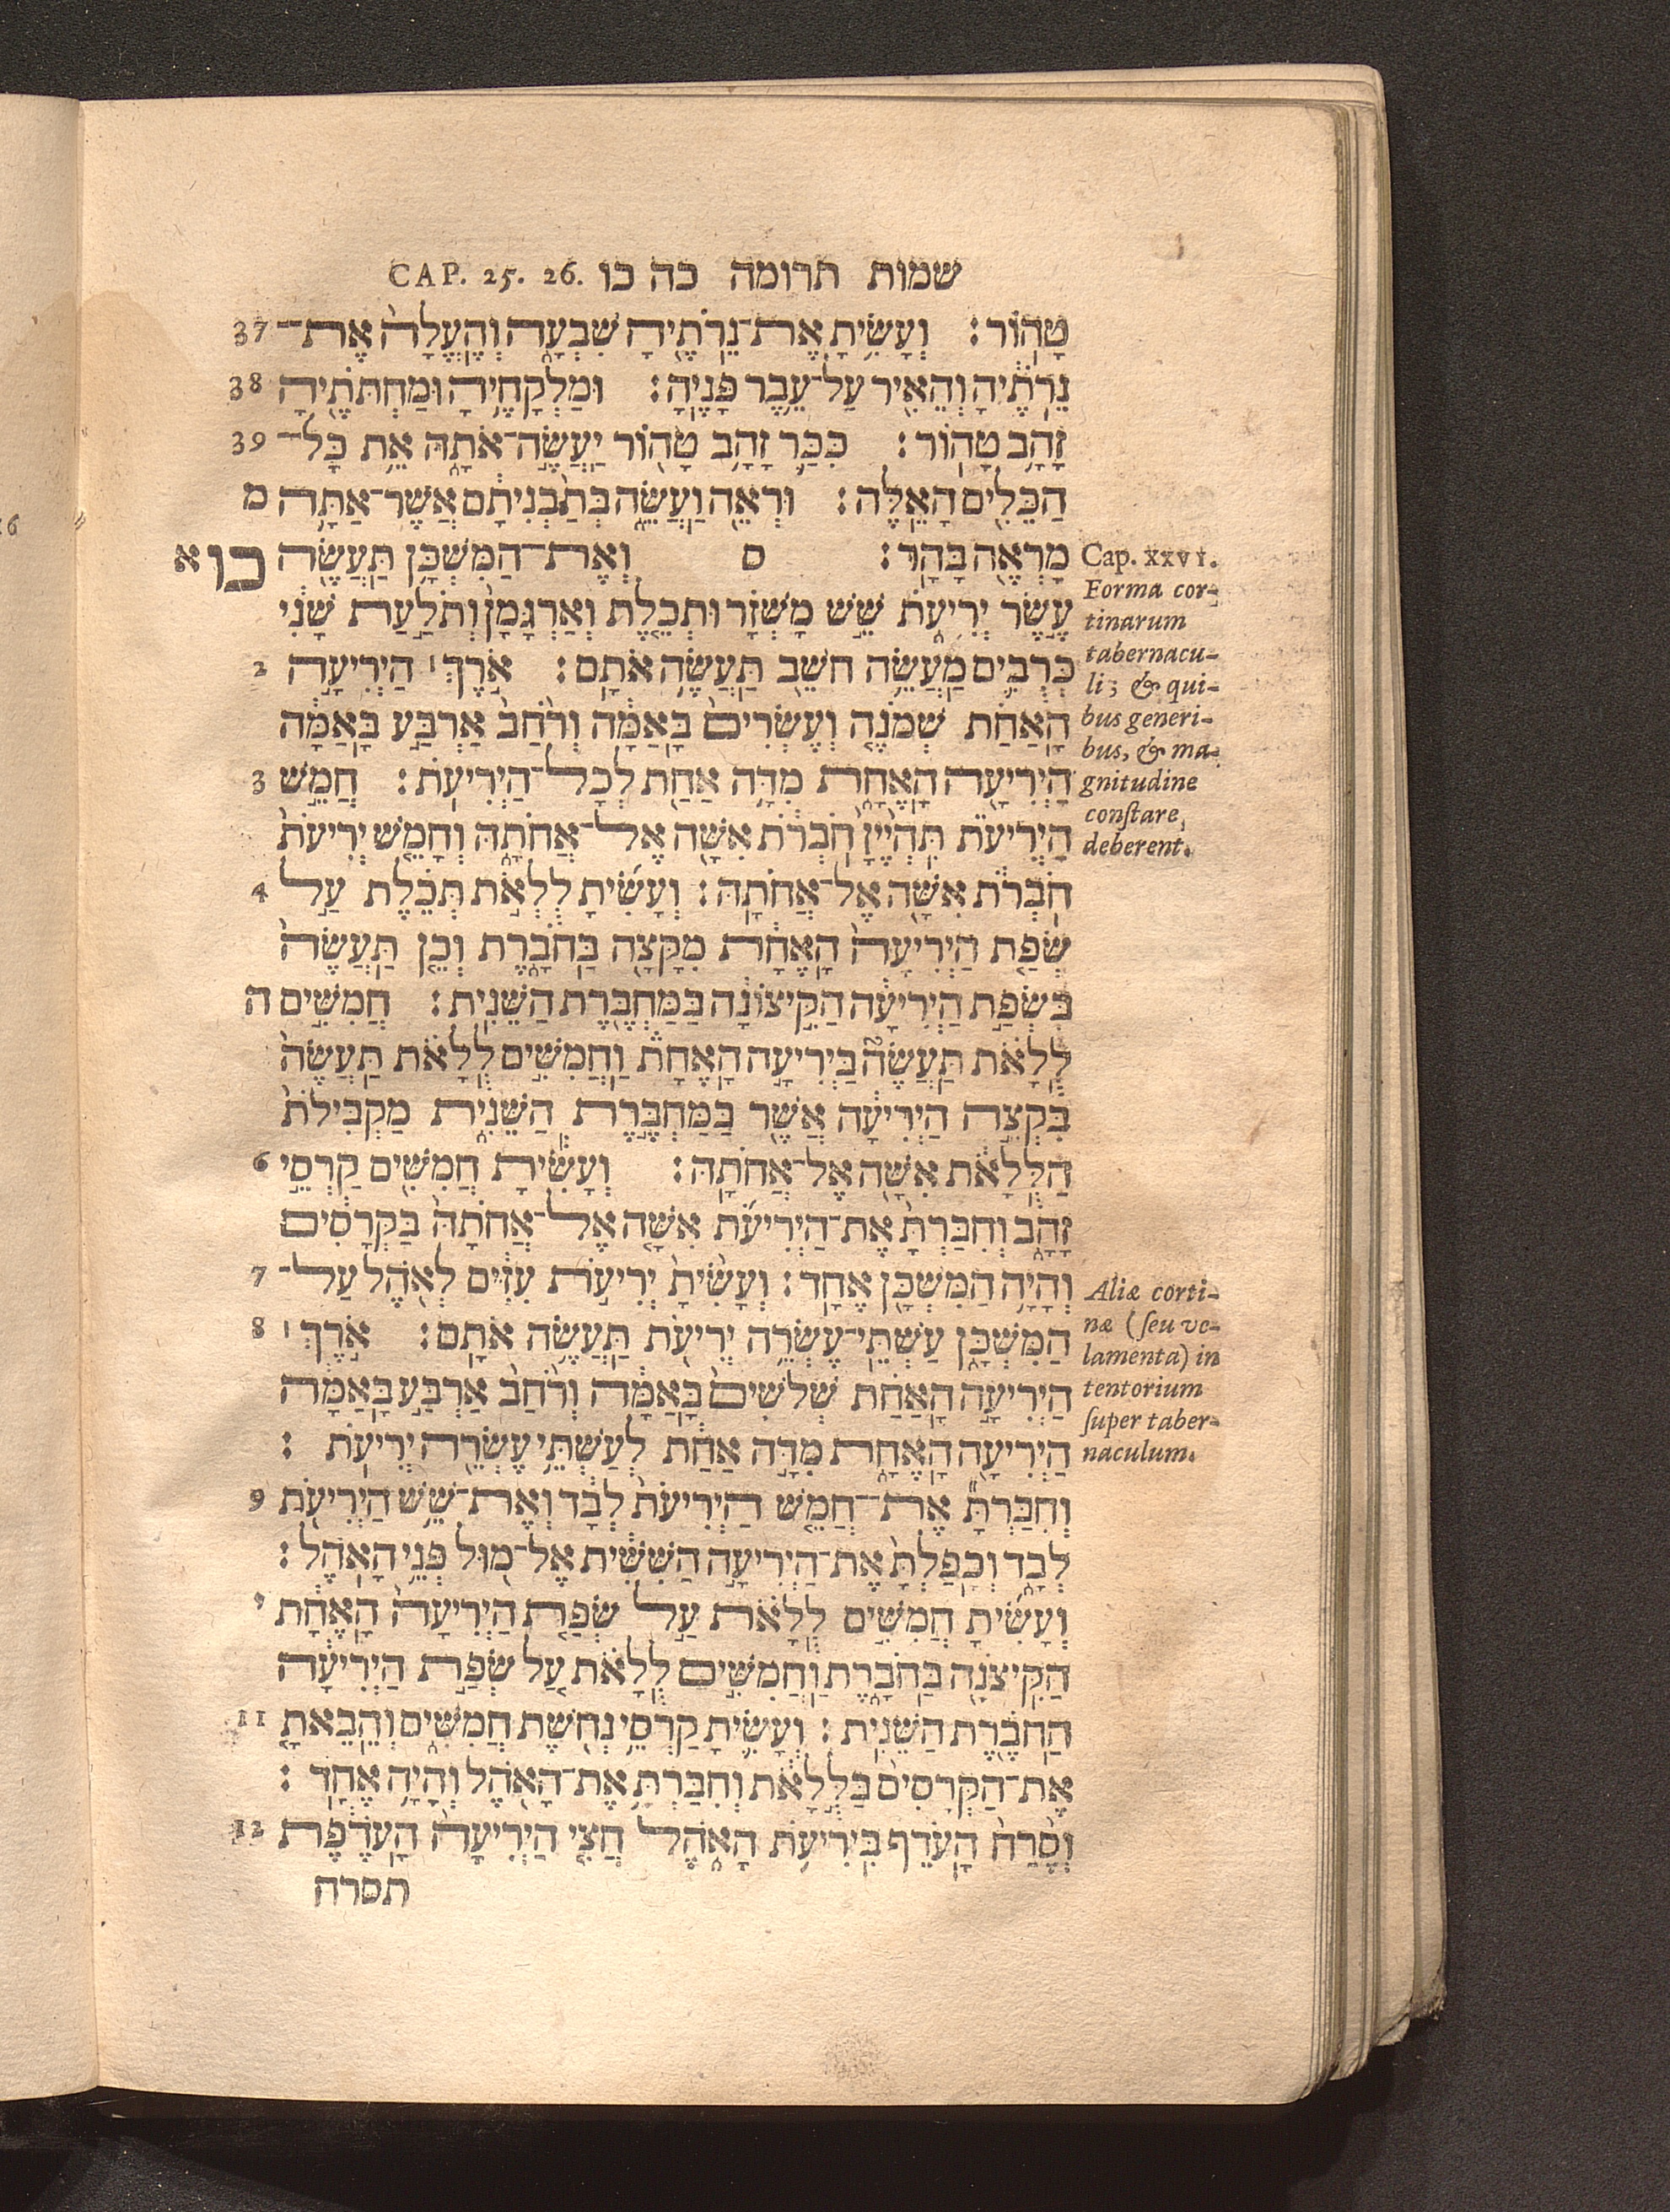 שמות תרומה כה כו CAP. 25. 26.
טָהֽוֹר׃ וְעָשִׂ֥יתָ אֶת־נֵרֹתֶ֖יהָ שִׁבְעָ֑ה וְהֶֽעֱלָה֙ אֶת־ 37
נֵ֣רֹתֶ֔יהָ וְהֵאִ֖יר עַל־עֵ֥בֶר פָּנֶֽיהָ׃ וּמַלְקָחֶ֥יהָ וּמַחְתֹּתֶ֖יהָ 38
זָהָ֥ב טָהֽוֹר׃ כִּכַּ֛ר זָהָ֥ב טָה֖וֹר יַֽעֲשֶׂ֣ה־אֹתָ֑הּ אֵ֥ת כָּל־ 39
הַכֵּלִ֖ים הָאֵֽלֶּה׃ וּרְאֵ֖ה וַֽעֲשֵׂ֑ה בְּתַ֨בְנִיתָ֔ם אֲשֶׁר־אַתָּ֥ה מ
מָרְאֶ֖ה בָּהָֽר׃ ס וְאֶת־הַמִּשְׁכָּ֥ן תַּֽעֲשֶׂ֖ה כו א
עֶ֣שֶׂר יְרִיעֹ֑ת שֵׁ֣שׁ מָשְׁזָ֗ר וּתְכֵ֤לֶת וְאַרְגָּמָן֙ וְתֹלַ֣עַת שָׁנִ֔י
כְּרֻבִ֛ים מַֽעֲשֵׂ֥ה חֹשֵׁ֖ב תַּֽעֲשֶׂ֥ה אֹתָֽם׃ אֹ֣רֶךְ ׀ הַיְרִיעָ֣ה 2
הָֽאַחַ֗ת שְׁמֹנֶ֤ה וְעֶשְׂרִים֙ בָּֽאַמָּ֔ה וְרֹ֨חַב֙ אַרְבַּ֣ע בָּֽאַמָּ֔ה
הַיְרִיעָ֖ה הָֽאֶחָ֑ת מִדָּ֥ה אַחַ֖ת לְכָל־הַיְרִיעֹֽת׃ חֲמֵ֣שׁ 3
הַיְרִיעֹ֗ת תִּֽהְיֶ֨יןָ֙ חֹֽבְרֹ֔ת אִשָּׁ֖ה אֶל־אֲחֹתָ֑הּ וְחָמֵ֤שׁ יְרִיעֹת֙
חֹֽבְרֹ֔ת אִשָּׁ֖ה אֶל־אֲחֹתָֽהּ׃ וְעָשִׂ֜יתָ לֻֽלְאֹ֣ת תְּכֵ֗לֶת עַ֣ל 4
שְׂפַ֤ת הַיְרִיעָה֙ הָֽאֶחָ֔ת מִקָּצָ֖ה בַּֽחֹבָ֑רֶת וְכֵ֤ן תַּֽעֲשֶׂה֙
בִּשְׂפַ֣ת הַיְרִיעָ֔ה הַקִּ֣יצוֹנָ֔ה בַּמַּחְבֶּ֖רֶת הַשֵּׁנִֽית׃ חֲמִשִּׁ֣ים ה
לֻֽלָאֹ֗ת תַּֽעֲשֶׂה֮ בַּיְרִיעָ֣ה הָֽאֶחָת֒ וַֽחֲמִשִּׁ֣ים לֻֽלָאֹ֗ת תַּֽעֲשֶׂה֙
בִּקְצֵ֣ה הַיְרִיעָ֔ה אֲשֶׁ֖ר בַּמַּחְבֶּ֣רֶת הַשֵּׁנִ֑ית מַקְבִּילֹת֙
הַלֻּ֣לָאֹ֔ת אִשָּׁ֖ה אֶל־אֲחֹתָֽהּ׃ וְעָשִׂ֕יתָ חֲמִשִּׁ֖ים קַרְסֵ֣י 6
זָהָ֑ב וְחִבַּרְתָּ֨ אֶת־הַיְרִיעֹ֜ת אִשָּׁ֤ה אֶל־אֲחֹתָהּ֙ בַּקְּרָסִ֔ים
וְהָיָ֥ה הַמִּשְׁכָּ֖ן אֶחָֽד׃ וְעָשִׂ֨יתָ֙ יְרִיעֹ֣ת עִזִּ֔ים לְאֹ֖הֶל עַל־ 7
הַמִּשְׁכָּ֑ן עַשְׁתֵּֽי־עֶשְׂרֵ֥ה יְרִיעֹ֖ת תַּֽעֲשֶׂ֥ה אֹתָֽם׃ אֹ֣רֶךְ ׀ 8
הַיְרִיעָ֣ה הָֽאַחַ֗ת שְׁלֹשִׁים֙ בָּֽאַמָּ֔ה וְרֹ֨חַב֙ אַרְבַּ֣ע בָּֽאַמָּ֔ה
הַיְרִיעָ֖ה הָֽאֶחָ֑ת מִדָּ֣ה אַחַ֔ת לְעַשְׁתֵּ֥י עֶשְׂרֵ֖ה יְרִיעֹֽת׃
וְחִבַּרְתָּ֞ אֶת־חֲמֵ֤שׁ הַיְרִיעֹת֙ לְבָ֔ד וְאֶת־שֵׁ֥שׁ הַיְרִיעֹ֖ת 9
לְבָ֑ד וְכָֽפַלְתָּ֙ אֶת־הַיְרִיעָ֣ה הַשִּׁשִּׁ֔ית אֶל־מ֖וּל פְּנֵ֥י הָאֹֽהֶל׃
וְעָשִׂ֜יתָ חֲמִשִּׁ֣ים לֻֽלָאֹ֗ת עַ֣ל שְׂפַ֤ת הַיְרִיעָה֙ הָֽאֶחָ֔ת י
הַקִּֽיצֹנָ֖ה בַּֽחֹבָ֑רֶת וַֽחֲמִשִּׁ֣ים לֻֽלָאֹ֗ת עַ֚ל שְׂפַ֣ת הַיְרִיעָ֔ה
הַֽחֹבֶ֖רֶת הַשֵּׁנִֽית׃ וְעָשִׂ֛יתָ קַרְסֵ֥י נְחֹ֖שֶׁת חֲמִשִּׁ֑ים וְהֵֽבֵאתָ֤ 11
אֶת־הַקְּרָסִים֙ בַּלֻּ֣לָאֹ֔ת וְחִבַּרְתָּ֥ אֶת־הָאֹ֖הֶל וְהָיָ֥ה אֶחָֽד׃
וְסֶ֨רַח֙ הָֽעֹדֵ֔ף בִּֽירִיעֹ֖ת הָאֹ֑הֶל חֲצִ֤י הַיְרִיעָה֙ הָֽעֹדֶ֔פֶת 12
תסרח
Cap. XXVI.
Forma cor-
tinarum
tabernacu-
li; & qui-
bus generi-
bus, & ma-
gnitudine
conſtare,
deberent.
Aliæ corti-
næ (ſeu ve-
lamenta) in
tentorium
ſuper taber-
naculum.